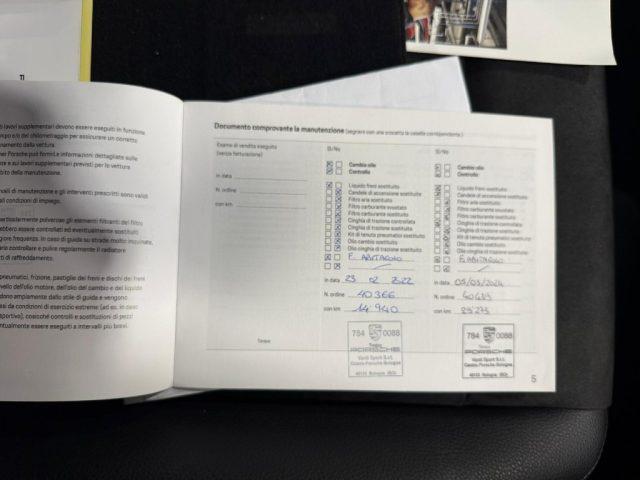 TI
lavori supplementari devono essere eseguiti in funzione
del chilometraggio per assicurare un corretto
vettura
Porsche può fornirLe informazioni dettagliate sulle
e sui lavori supplementari previsti per la vettura
della manutenzione.
di manutenzione e gli interventi prescritti sono validi
condizioni di impiego.
polverose gli elementi filtranti del filtro
essere controllati ed eventualmente sostituiti
frequenza. In caso di guida su strade molto inquinate,
controllare e pulire regolarmente il radiatore
di raffreddamento.
pneumatici, frizione, pastiglie dei freni e dischi dei freni
livello dell'olio motore, dell'olio del cambio e del liquido
ampiamente dallo stile di guida e vengono
da condizioni di esercizio estreme (ad es. in caso
cosicché controlli e sostituzioni di pezzi
eseguiti a intervalli più brevi.
Documento comprovante la manutenzione (segnare con una crocetta la casella corrispondente.)
Esame di vendita eseguito
(senza fatturazione)
in data
N. ordine
con km
Timbro
Sì/No
Cambio olio
Controllo
Liquido freni sostituito
Candele di accensione sostituite
Filtro aria sostituito
Filtro carburante svuotato
Filtro carburante sostituito
Cinghia di trazione controllata
Cinghia di trazione sostituita
Kit di tenuta pneumatici sostituito
Olio cambio sostituito
Olio cinghia di trazione sostituito
F. ABITACOLO
in data 23 02 2022
N. ordine 40366
con km 14 940
784 0088
Timbro
PORSCHE
Vanti Sport S.r.l.
Centro Porsche Bologna
40131 Bologna (BO)
Sì/No
Cambio olio
Controllo
Liquido freni sostituito
Candele di accensione sostituite
Filtro aria sostituito
Filtro carburante svuotato
Filtro carburante sostituito
Cinghia di trazione controllata
Cinghia di trazione sostituita
Kit di tenuta pneumatici sostituito
Olio cambio sostituito
Olio cinghia di trazione sostituito
F. ABITACOLO
in data 05/03/2024
N. ordine
con km 29'273
784 0088
Timbro
PORSCHE
Centro Porsche Bologna
5